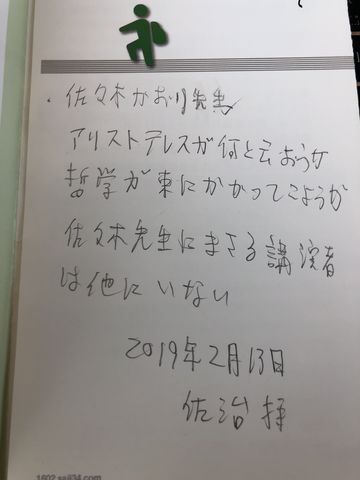 ・佐々木かおり先生
アリストテレスが何と云おうが
哲学が束にかかってこようが
佐々木先生にまさる講演者
は他にいない
2019年2月13日
佐治 拝
1602.saji34.com